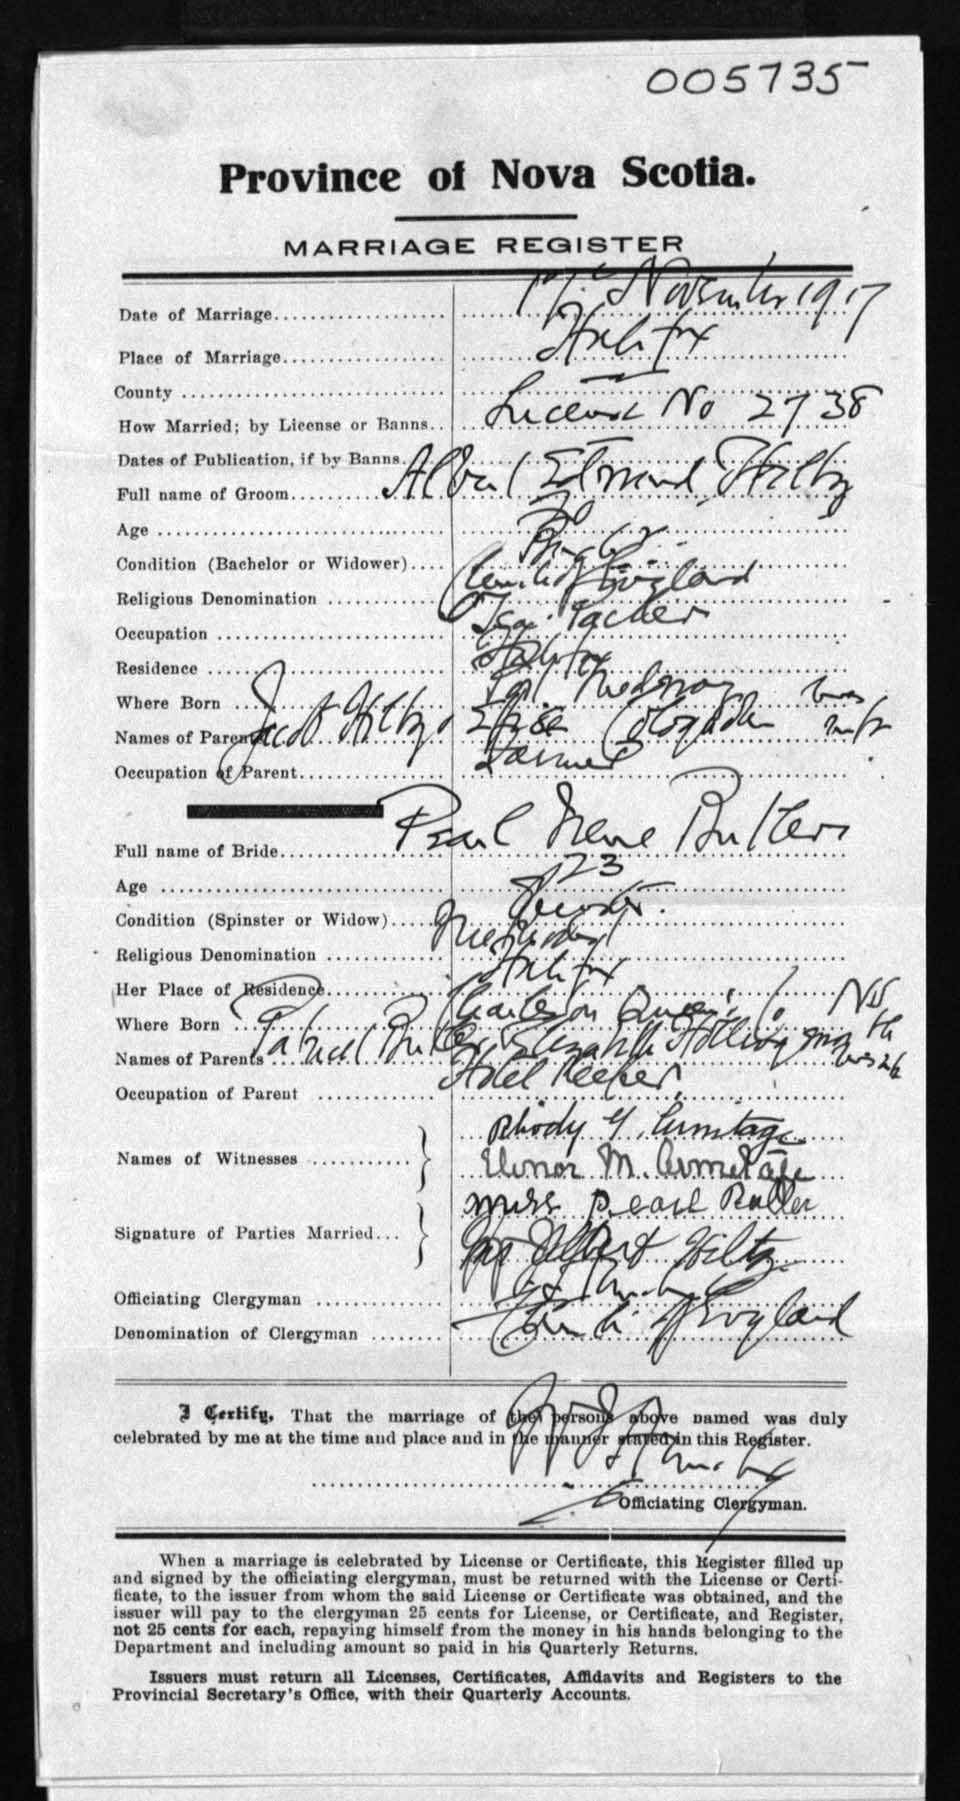 005735
Province of Nova Scotia.
MARRIAGE REGISTER
Date of Marriage November 1917
Place of Marriage Halifax
County
How Married; by License or Banns License No 2738
Dates of Publication, if by Banns
Full name of Groom Albert Edmund Hiltz
Age
Condition (Bachelor or Widower)
Religious Denomination Church of England
Occupation Tea Packer
Residence Halifax
Where Born Port Medway
Names of Parents Jacob Hiltz
Occupation of Parent Farmer
Full name of Bride Pearl Irene Butler
Age 23
Condition (Spinster or Widow) Spinster
Religious Denomination Methodist
Her Place of Residence Halifax
Where Born Charleston Queens Co. NS
Names of Parents Butler Elizabeth
Occupation of Parent Hotel Keeper
Names of Witnesses Rhody Y. Armitage
Elinor M. Armitage
Signature of Parties Married miss Pearl Butler
Albert Hiltz
Officiating Clergyman
Denomination of Clergyman Church of England
I Certify, That the marriage of the persons above named was duly
celebrated by me at the time and place and in the manner stated in this Register.
Officiating Clergyman.
When a marriage is celebrated by License or Certificate, this Register filled up
and signed by the officiating clergyman, must be returned with the License or Certi-
ficate, to the issuer from whom the said License or Certificate was obtained, and the
issuer will pay to the clergyman 25 cents for License, or Certificate, and Register,
not 25 cents for each, repaying himself from the money in his hands belonging to the
Department and including amount so paid in his Quarterly Returns.
Issuers must return all Licenses, Certificates, Affidavits and Registers to the
Provincial Secretary's Office, with their Quarterly Accounts.